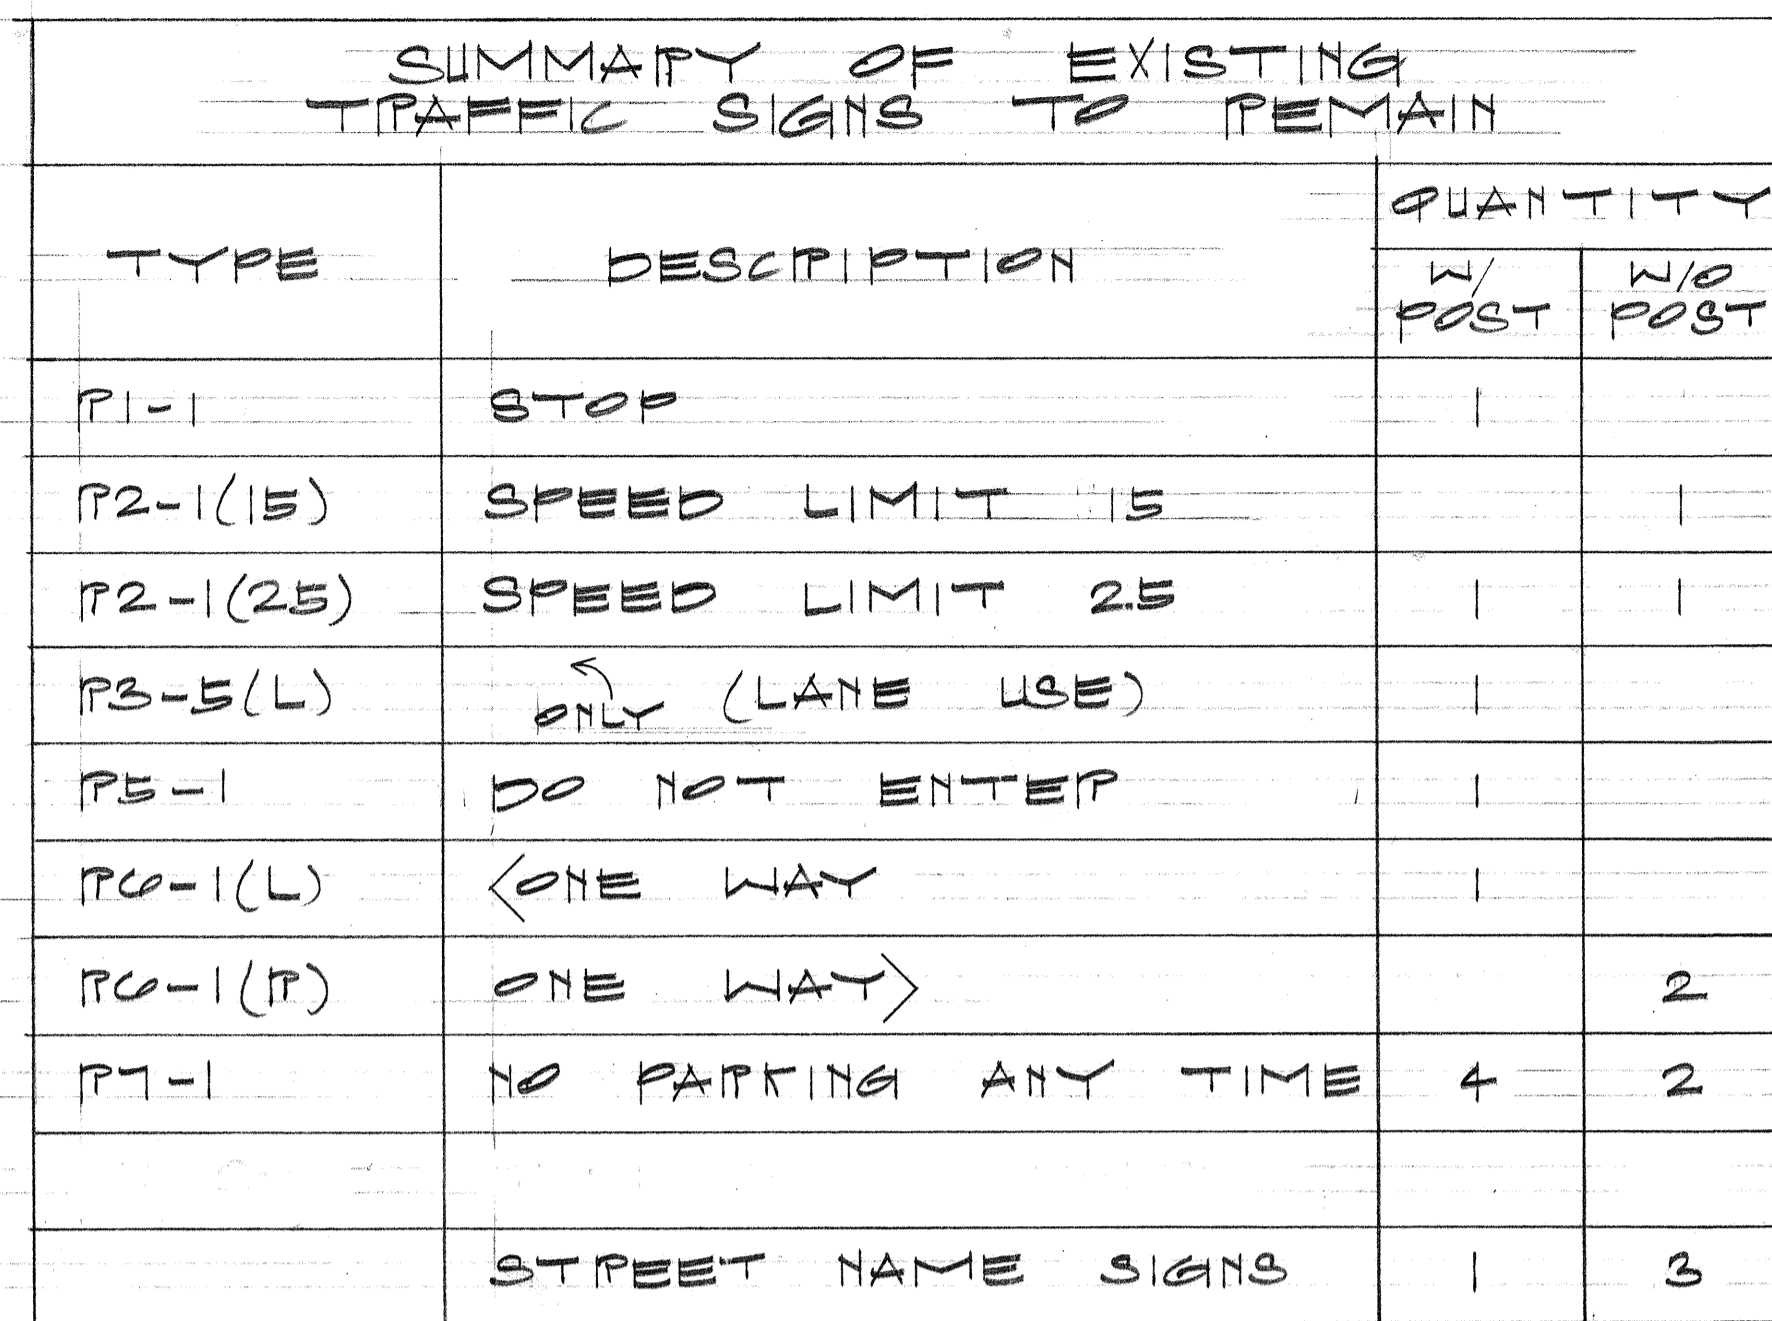 SUMMARY OF EXISTING
TRAFFIC SIGNS TO REMAIN
TYPE DESCRIPTION QUANTITY
W/ POST W/O POST
R1-1 STOP 1
R2-1(15) SPEED LIMIT 15 1
R2-1(25) SPEED LIMIT 25 1 1
R3-5(L) ONLY (LANE USE) 1
R5-1 DO NOT ENTER 1
R6-1(L) <ONE WAY 1
R6-1(R) ONE WAY> 2
R7-1 NO PARKING ANY TIME 4 2
STREET NAME SIGNS 1 3